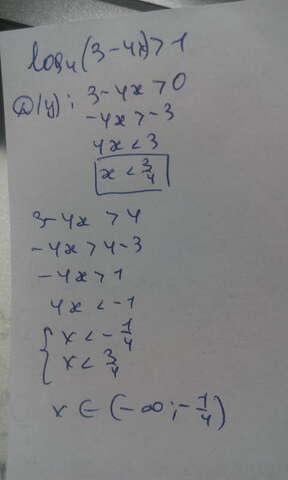 log₄(3-4x)>1
D(y): 3-4x>0
-4x>-3
4x<3
x<3/4
3-4x>4
-4x>4-3
-4x>1
4x<-1
{x<-1/4
{x<3/4
x∈(-∞;-1/4)